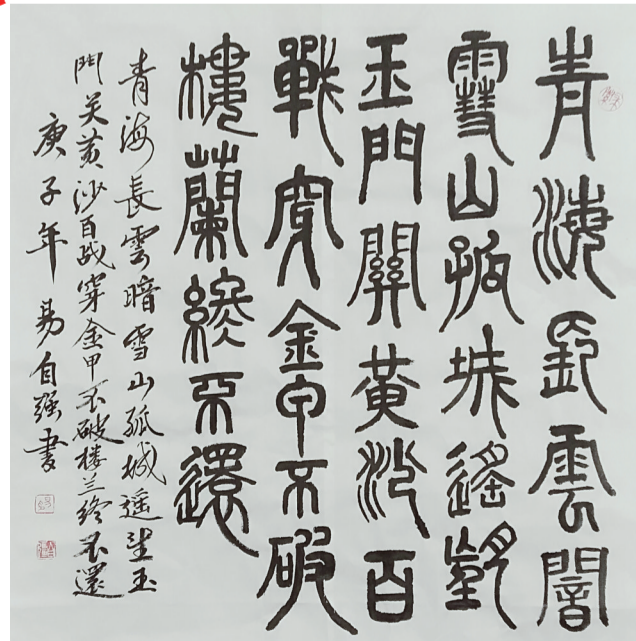 青海長雲闇
雪山孤城遥望
玉門關黄沙百
戰穿金甲不破
樓蘭終不還
青海長雲暗雪山孤城遥望玉
門关黄沙百战穿金甲不破楼兰终不還
庚子年易自强書